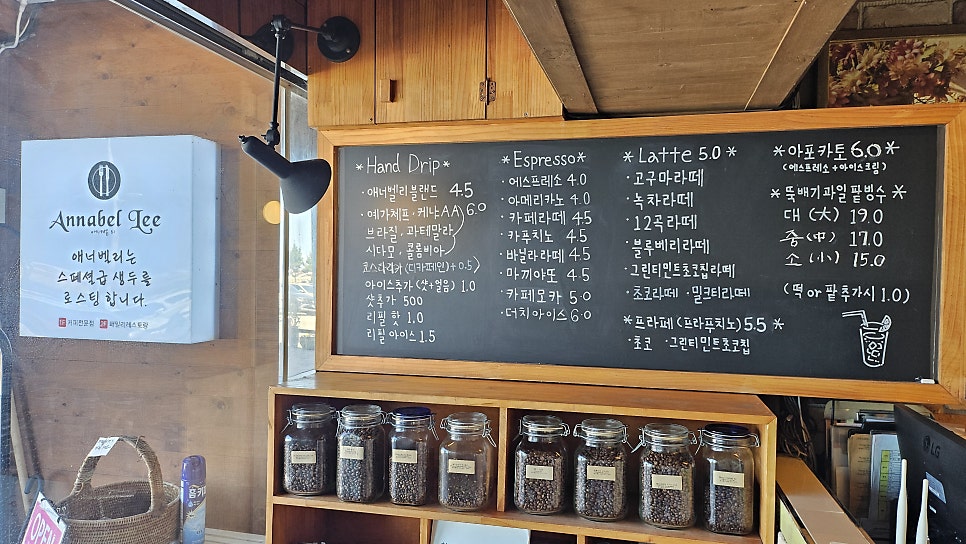 Annabel Lee
애너벨 리
애너벨리는
스페셜급 생두를
로스팅 합니다.
커피전문점
패밀리레스토랑
OPEN
*Hand Drip*
· 애너벨리 블랜드 4.5
· 예가체프·케냐AA 6.0
브라질, 과테말라
시다모, 콜롬비아
코스타리카 (디카페인+0.5)
아이스추가 (샷+얼음) 1.0
샷추가 500
리필 핫 1.0
리필 아이스 1.5
*Espresso*
· 에스프레소 4.0
· 아메리카노 4.0
· 카페라떼 4.5
· 카푸치노 4.5
· 바닐라라떼 4.5
· 마끼아또 4.5
· 카페모카 5.0
· 더치아이스 6.0
*Latte 5.0*
· 고구마라떼
· 녹차라떼
· 12곡라떼
· 블루베리라떼
· 그린티민트초코칩라떼
· 초코라떼 · 밀크티라떼
*프라페 (프라푸치노) 5.5*
· 초코 · 그린티민트초코칩
*아포카토 6.0*
(에스프레소+아이스크림)
*뚝배기과일팥빙수*
대 (大) 19.0
중 (中) 17.0
소 (小) 15.0
(떡 or 팥 추가시 1.0)
LG